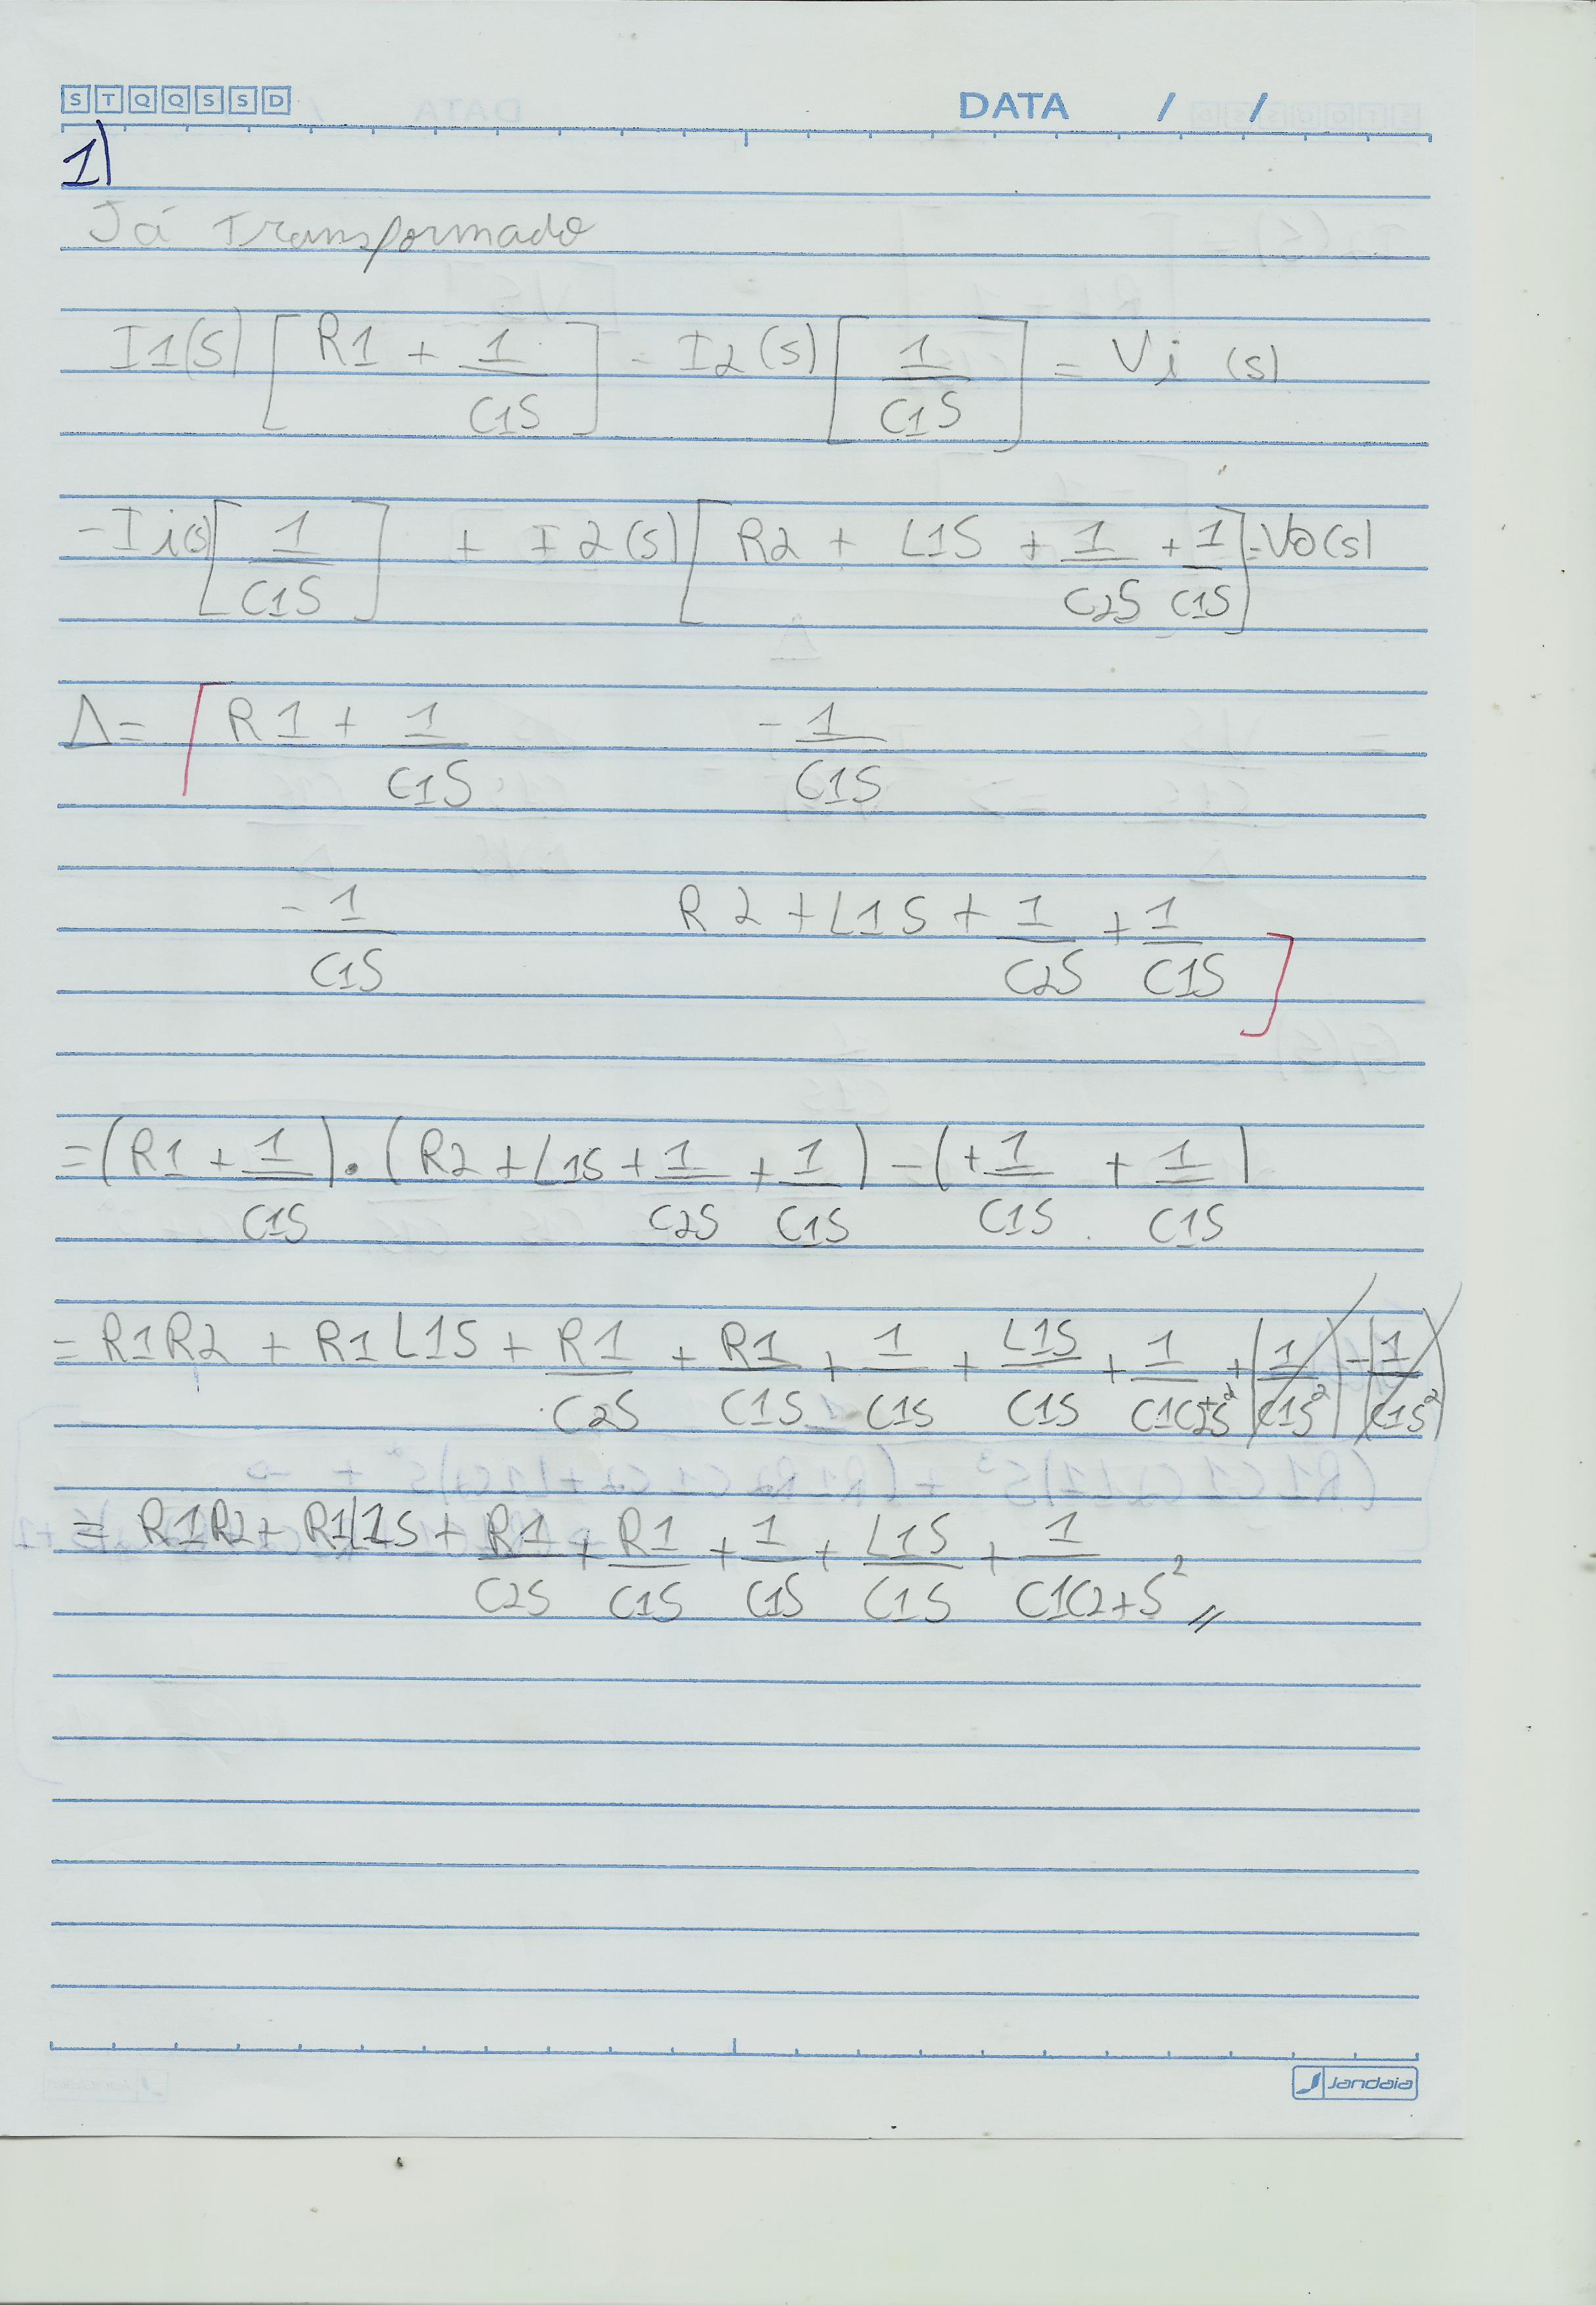 S T Q Q S S D DATA / /
1)
Já Transformado
I1(S) [R1 + 1/C1S] - I2(s) [1/C1S] = Vi (s)
-I1(s) [1/C1S] + I2(s) [R2 + L1S + 1/C2S + 1/C1S] = Vo(s)
Δ = [R1 + 1/C1S -1/C1S
-1/C1S R2 + L1S + 1/C2S + 1/C1S]
= (R1 + 1/C1S) . (R2 + L1S + 1/C2S + 1/C1S) - (+1/C1S + 1/C1S)
= R1R2 + R1L1S + R1/C2S + R1/C1S + 1/C1S + L1S/C1S + 1/C1C2+S² + (1/C1S²) - (1/C1S²)
= R1R2 + R1L1S + R1/C2S + R1/C1S + 1/C1S + L1S/C1S + 1/C1C2+S² //
Jandaia